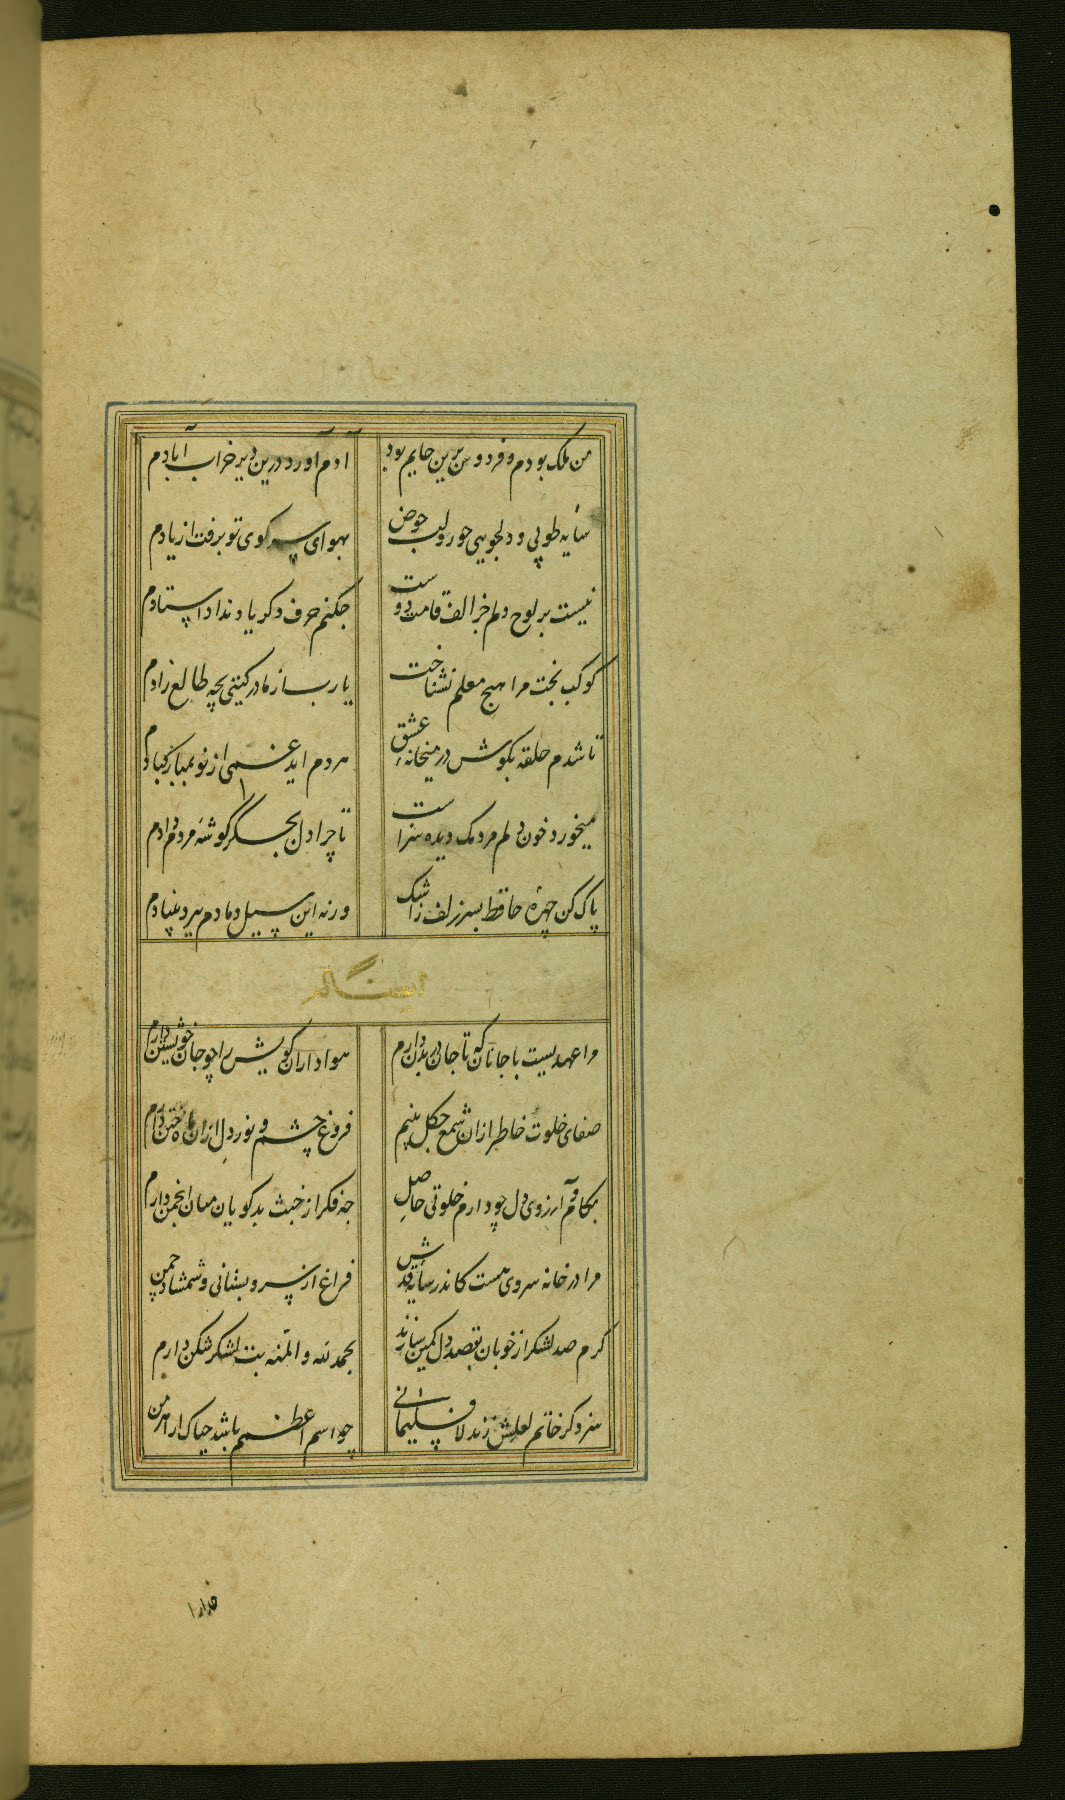 من ملک بودم و فردوس برین جایم بود آدم آورد درین دیر خراب آبادم
سایه طوبی و دلجویی حور و لب حوض بهوای سر کوی تو برفت از یادم
نیست بر لوح دلم جز الف قامت دوست چکنم حرف دکر یاد نداد استادم
کوکب بخت مرا هیچ معلم نشناخت یا رب از مادر کیتی بچه طالع زادم
تا شدم حلقه بکوش در میخانه عشق هر دم اید غمی از نو بمبارکبادم
میخورد خون دلم مردمک دیده سزاست تا چرا دل بجگر کوشه مردم دادم
پاک کن چهره حافظ بسر زلف ز اشک ورنه این سیل دمادم ببرد بنیادم
مرا عهدیست با جانان که تا جان در بدن دارم هواداران کویش را چو جان خویشتن دارم
صفای خلوت خاطر ازان شمع چکل بینم فروغ چشم و نور دل ازان ماه ختن دارم
بکام و آرزوی دل چو دارم خلوتی حاصل چه فکر از خبث بدکویان میان انجمن دارم
مرا در خانه سروی هست کاندر سایه قدش فراغ از سرو بستانی و شمشاد چمن
کرم صد لشکر از خوبان بقصد دل کمین سازند بحمد لله و المنه بت لشکر شکن دارم
سزد کر خاتم لعلش زند لاف سلیمانی چو اسم اعظم باشد چباک از اهرمن
خدارا